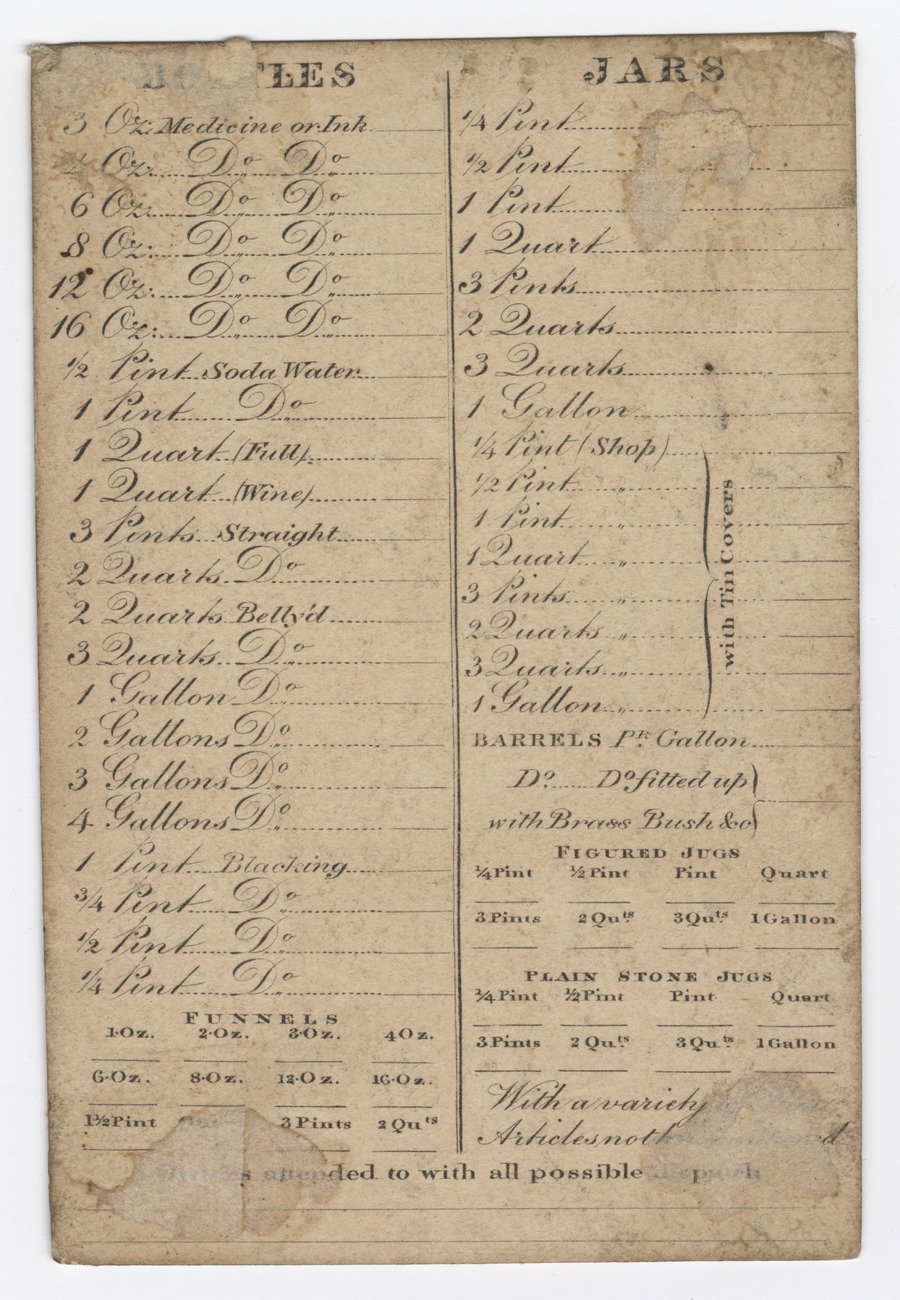 BOTTLES
3 Oz: Medicine or Ink
4 Oz: Do Do
6 Oz: Do Do
8 Oz: Do Do
12 Oz: Do Do
16 Oz: Do Do
1/2 Pint Soda Water
1 Pint Do
1 Quart (Full)
1 Quart (Wine)
3 Pints Straight
2 Quarts Do
2 Quarts Belly'd
3 Quarts Do
1 Gallon Do
2 Gallons Do
3 Gallons Do
4 Gallons Do
1 Pint Blacking
3/4 Pint Do
1/2 Pint Do
1/4 Pint Do
FUNNELS
1·Oz. 2·Oz. 3·Oz. 4 Oz.
6·Oz. 8·Oz. 12·Oz. 16·Oz.
1½ Pint 3 Pints 2 Quts
JARS
1/4 Pint
1/2 Pint
1 Pint
1 Quart
3 Pints
2 Quarts
3 Quarts
1 Gallon
1/4 Pint (Shop)
1/2 Pint „
1 Pint „
1 Quart „
3 Pints „
2 Quarts „
3 Quarts „
1 Gallon „
with Tin Covers
BARRELS Pr. Gallon
Do. Do. fitted up
with Brass Bush &c
FIGURED JUGS
¼ Pint ½ Pint Pint Quart
3 Pints 2 Quts 3 Quts 1 Gallon
PLAIN STONE JUGS
¼ Pint ½ Pint Pint Quart
3 Pints 2 Quts 3 Quts 1 Gallon
With a variety
Articles not
Orders attended to with all possible dispatch